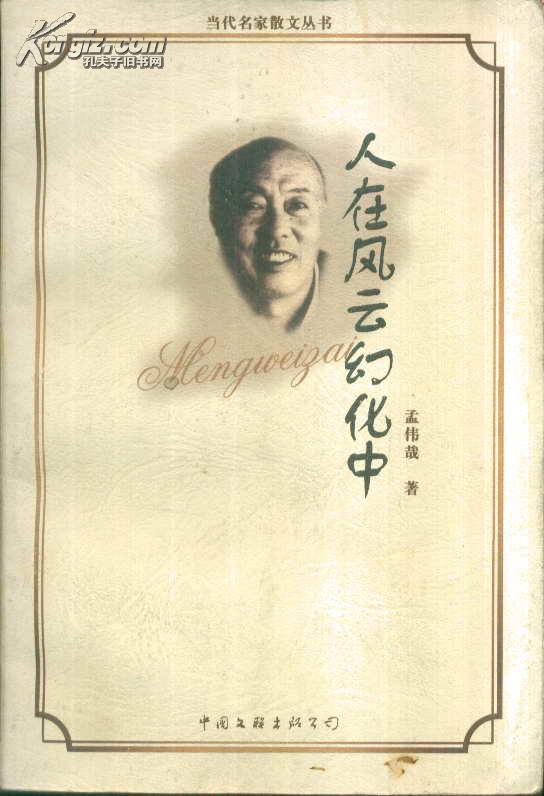 当代名家散文丛书
Kongfz.com
孔夫子旧书网
人在风云幻化中
Mengweizai
孟伟哉 著
中国文联出版公司